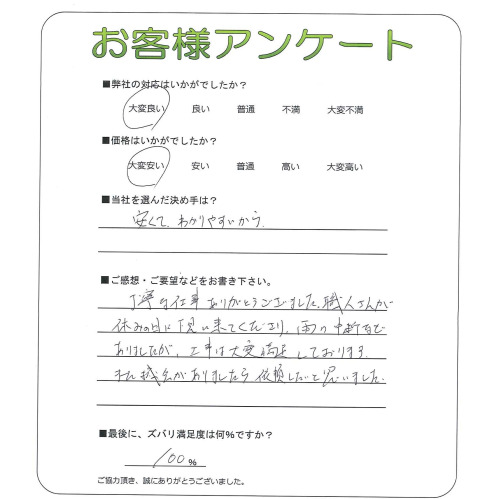 お客様アンケート
■弊社の対応はいかがでしたか?
大変良い 良い 普通 不満 大変不満
■価格はいかがでしたか?
大変安い 安い 普通 高い 大変高い
■当社を選んだ決め手は?
安くて、わかりやすいから
■ご感想・ご要望などをお書き下さい。
丁寧な仕事ありがとうございました。職人さんが
休みの日に見に来てくださり、雨の中断など
ありましたが、工事は大変満足しております。
また機会がありましたら依頼したいと思いました。
■最後に、ズバリ満足度は何%ですか?
100%
ご協力頂き、誠にありがとうございました。